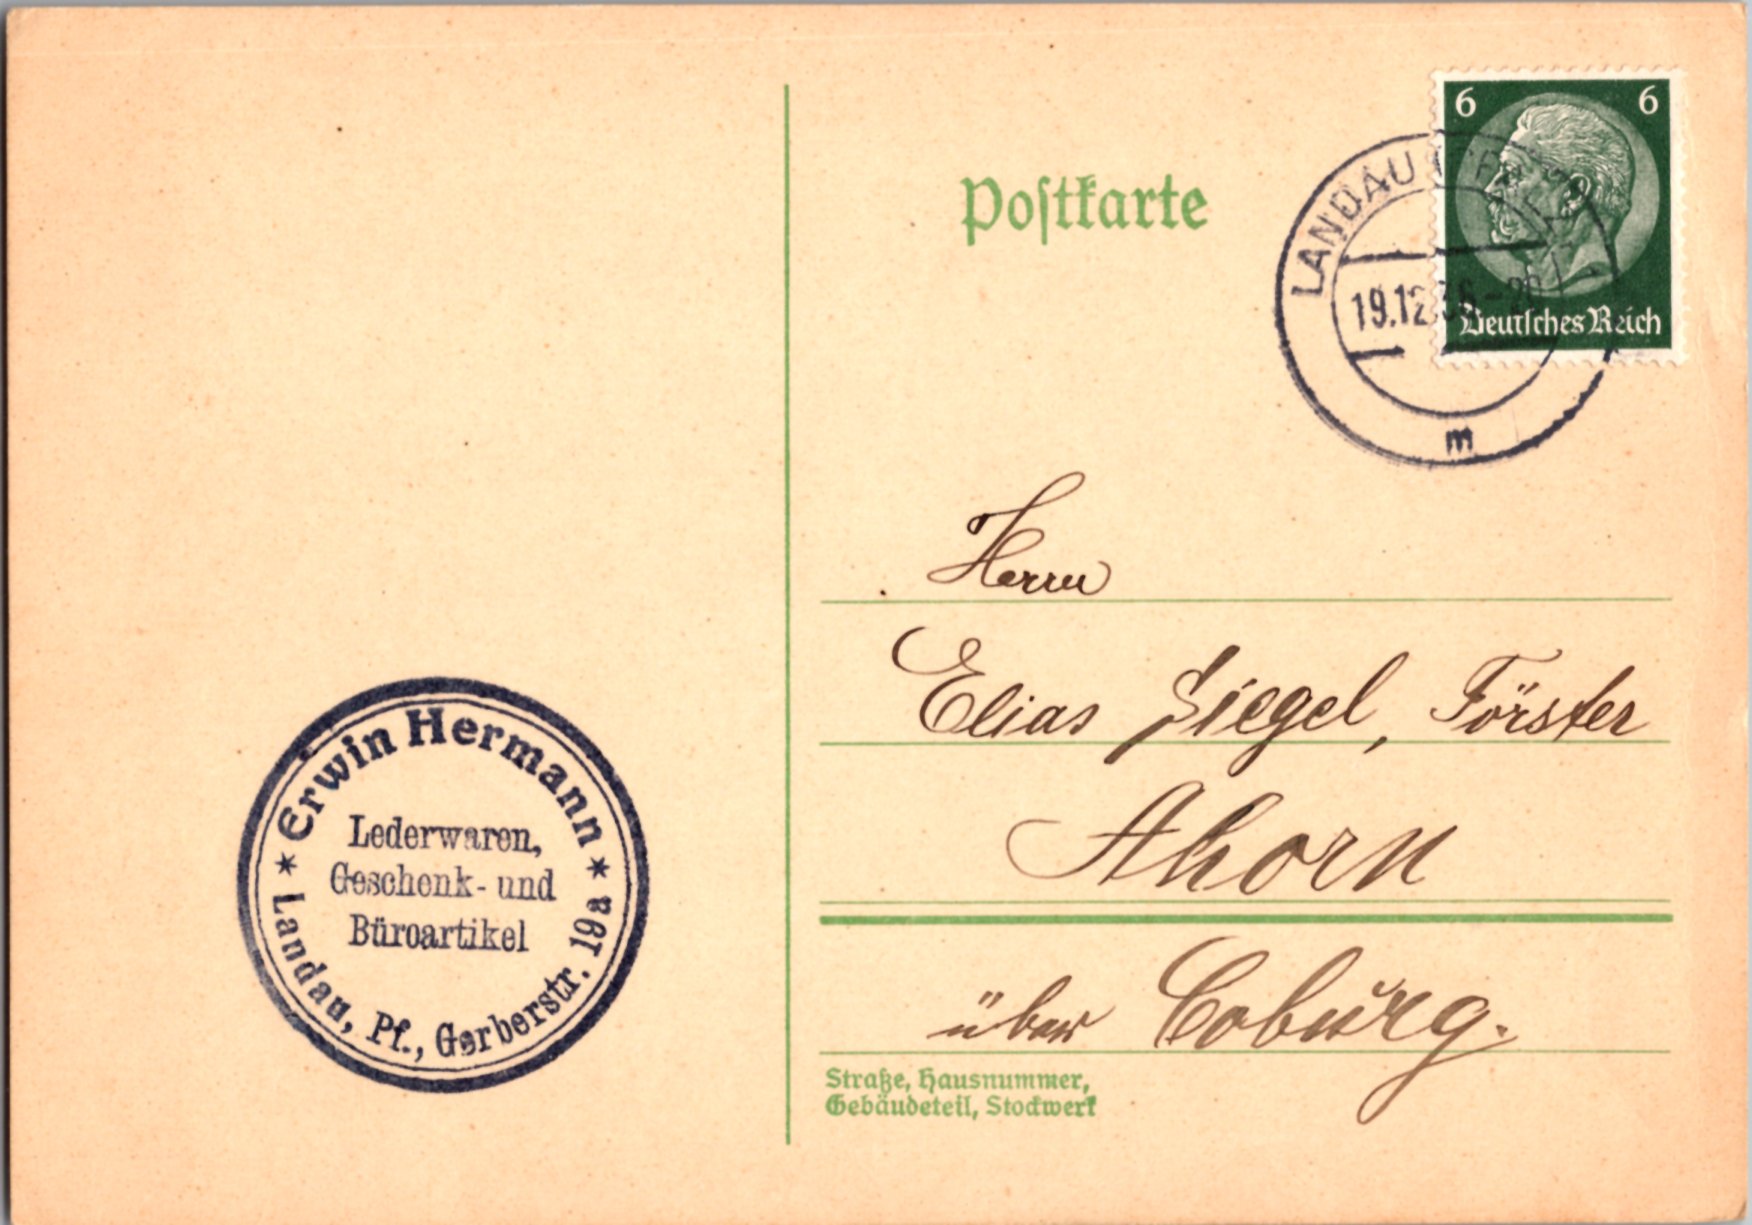 Postkarte
6 6
Deutsches Reich
LANDAU (PFALZ)
19.12.36.-20
m
Herrn
Elias Siegel, Förster
Ahorn
über Coburg.
Straße, Hausnummer,
Gebäudeteil, Stockwerk
* Erwin Hermann *
Lederwaren,
Geschenk- und
Büroartikel
Landau, Pf., Gerberstr. 19a